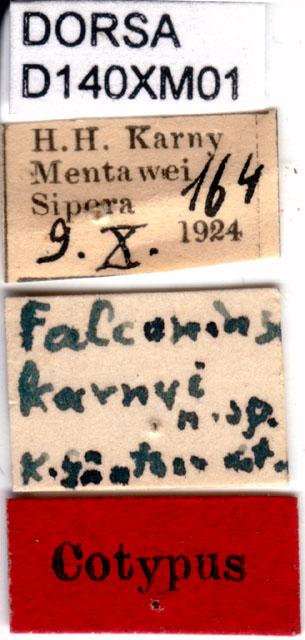 DORSA
D140XM01
H.H. Karny
Mentawei 164
Sipora
9. X. 1924
karnyi
n. sp.
K. Günther det.
Cotypus